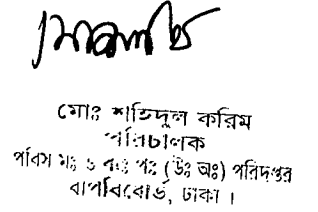 মোঃ শহিদুল করিম
পরিচালক
পবিস মঃ ও পঃ (উঃ অঃ) পরিদপ্তর
বাপবিবোর্ড, ঢাকা ।